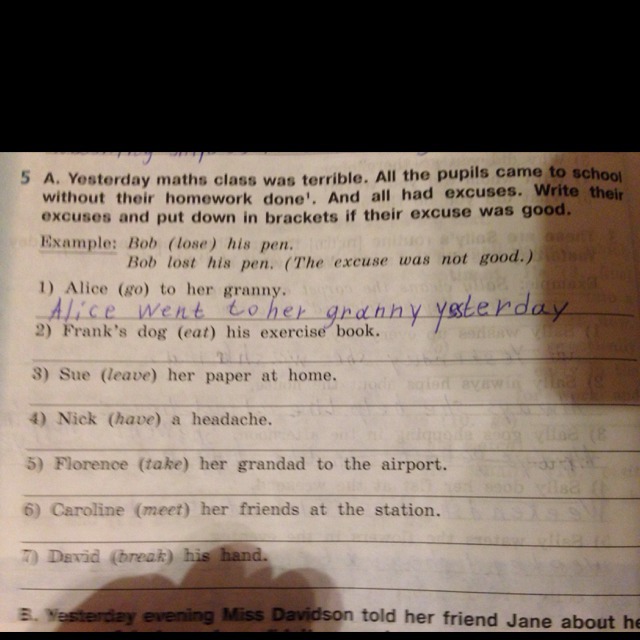 5 A. Yesterday maths class was terrible. All the pupils came to school
without their homework done¹. And all had excuses. Write their
excuses and put down in brackets if their excuse was good.
Example: Bob (lose) his pen.
Bob lost his pen. (The excuse was not good.)
1) Alice (go) to her granny.
Alice went to her granny yesterday
2) Frank's dog (eat) his exercise book.
3) Sue (leave) her paper at home.
4) Nick (have) a headache.
5) Florence (take) her grandad to the airport.
6) Caroline (meet) her friends at the station.
7) David (break) his hand.
B. Yesterday evening Miss Davidson told her friend Jane about